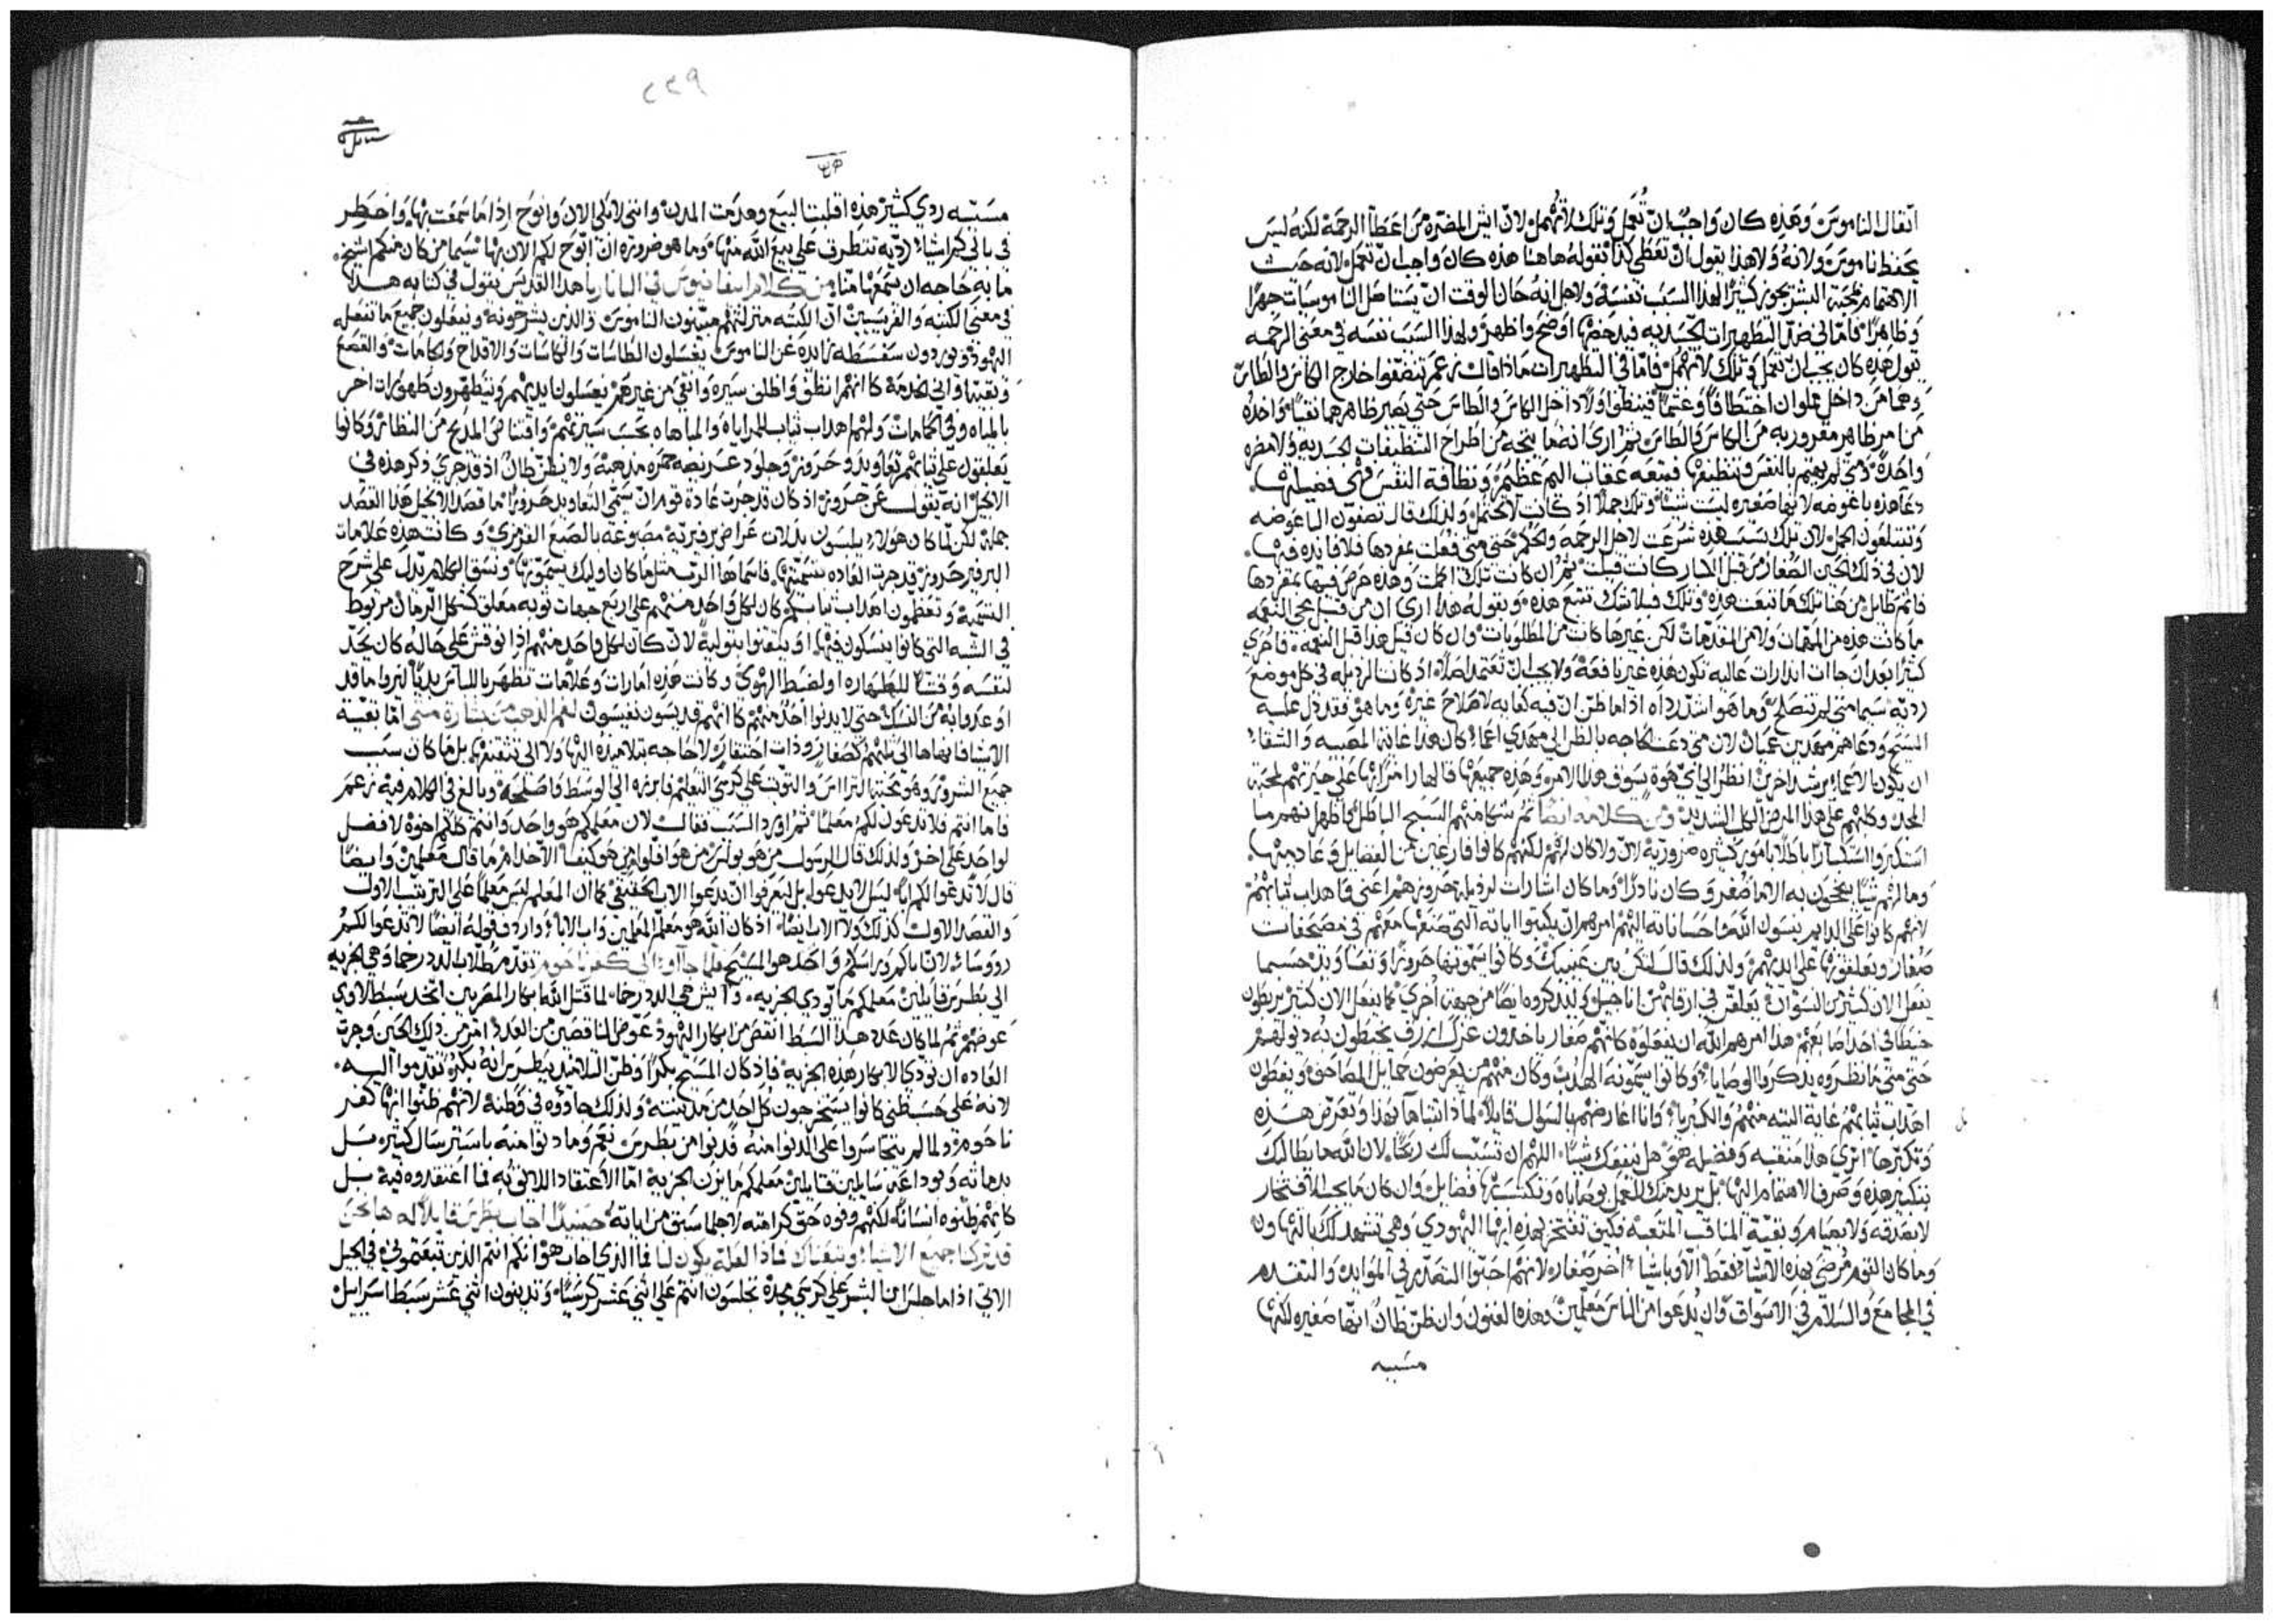 اثقال الناموس وهذه كان واجبٌ ان تُعمل وتلك لا تُهمل لان ايش المضره من اعطآ الرحمة لكنه ليس
يحفظ ناموس ولانهُ ولا هذا يقول ان تعطى كذا فقوله هاهنا هذه كان واجب ان تعمل لانه حيث
الاهتمام لمحبة البشر يجوز كثيرًا لهذا السبب نفسه ولاجل انهُ حان الوقت ان يستاصل الناموسيات جهرًا
وظاهرًا فامّا في فصل التطهيرات الجسديه فيدحضها اوضح واظهر ولهذا السبب نفسه في معنى الرحمه
يقول هذه كان يجب ان تعمل وتلك لا تهمل فامّا في التطهيرات ماذا قال زعم تنضفوا خارج الكاس والطاس
وهما من داخل مملوان اختطافًا وغشمًا فينظفوا اولًا داخل الكاس والطاس حتى يصير ظاهرهما نقيًا واخذه
من امر ظاهر مقرور به من الكاس والطاس ثم ارى انه ما ينجح من اطراح التنظيفات الجسديه ولا مضره
واحدة ومتى لم يهتم بالنفس وتنظيفها فيتبعه عقاب اليم عظيم ونظافة النفس فهى فضيلتها
دعا هذه باعوضه لانها صغيره ليست شيئا وتلك جملًا اذ كانت لا تحتمل ولذلك قال تصفون الباعوضه
وتبتلعون الجمل لان تلك بسبب هذه شرعت لاجل الرحمه والحكم حتى متى فعلت بمفردها فلا فائده فيها
لان في ذلك الحين الصغار من قبل الكبار كانت قيلت ثم ان كانت تلك اهملت وهذه حرص فيها بمفردها
فاثم طايل من هنا تلك ما تتبعت هذه وتلك فبلا شك تتبع هذه وبقوله هذا ارى ان من قبل مجى النعمه
ما كانت هذه من المهمات ولا من المقدمات لكن غيرها كانت من المطلوبات وان كان قبل هذا قبل النعمه فاحرى
كثيرًا بعد ان جاات انذارات عاليه تكون هذه غير نافعة ولا يجب ان تعتمد اصلًا اذ كانت الرذيله في كل موضع
رديه سيما متى لم تنصلح وما هو اشد رداه اذا ما ظن ان فيه كفايه لاصلاح غيره وما هو فقد دل عليه
المسيح ودعاهم مهديين عميان لان متى دعت الحاجه بالظن الى مهدي اعما كان هذا غاية المصيبه والشقا
ان يكون الاعما مرشدا خرين انظر الى اي هوة يسوق هذا الامر وهذه جميعها قالها رامزًا بها على حيرتهم لمحبة
المجد وكلبهم على هذا المرض الكلى الشديد ومن كلامه ايضًا ثم شكا منهم السبح الباطل واظهر انهم ما
استكبروا استكبارًا باطلًا بامور كثيره ضروريه لان ولا كان لهم لكنهم كانوا فارغين من الفضايل وعادميها
وما لهم شيًا ينجحون به الا ما صغر وكان نادرًا وما كان اشارات لرذيلة حروزهم اعني واهداب ثيابهم
لانهم كانوا على الدايم ينسون الله واحساناته اليهم امرهم ان يكتبوا اياته التي صنعها معهم في مصحفات
صغار ويعلقونها على ايديهم ولذلك قال لتكن بين عينيك وكانوا يسمونها حروزًا وتعاويذ حسبما
يفعل الان كثير من النسوان يعلقن في ارقابهن اناجيل ولكي يذكروه ايضًا من جهة اخرى كما يفعل الان كثير يربطون
خيطًا في احد اصابعهم هذا امرهم الله ان يفعلوه كانهم صغار ياخذون غزل ازرق يخيطون به ذيولهم
حتى متى ما نظروه يذكروا الوصايا وكانوا يسمونه الهدب وكان منهم من يعرضون حمايل المصاحف ويعظمون
اهداب ثيابهم غاية التيه منهم والكبريا وانا اعارضهم بالسوال قايلًا لماذا ايتباها بهذا وتعرض هذه
وتكبرها اترى هذا منفعه وفضيله هي هل تنفعك شيًا اللهم ان تسبب لك ربحًا لان الله ما يطالبك
بتكبير هذه وصرف الاهتمام اليها بل يريد منك العمل بوصاياه وتكتسب بها فضايل وان كان ما يجب الافتخار
لا بصدقه ولا بصيام وبقية المناقب المتعبه فكيف تفتخر بهذه ايها اليهودي وهي تشهد لك بالتهاون
وما كان القوم مرضى بهذه الاشيا فقط الا وباشيا اخر صغار لانهم احبوا التصدير في الموايد والتقدم
في المجامع والسلام في الاسواق وان يُدعوا من الناس معلمين وهذه العيون وان ظن ظان انها صغيره لكنها
مسببه
٢٢٩
مسببه ردي كثير هذه اقلبت البيع وهدمت المدن وانني لابكى الان وانوح اذا ما سمعت بها واخطر
في بالي كم اشيا رديه تتطرف على بيع الله منها وما هو ضرورة ان اوضح لكم الان بها سيما من كان منكم شيخ
ما به حاجه ان يسمعها منا من كلام ابيفانيوس في البناريا هذا القديس يقول في كتابه هذا
في معنى الكتبه والفريسيين ان الكتبه منزلتهم مبينون الناموس والذين يشرحونه ويفعلون جميع ما تفعله
اليهود ويوردون سفسطه زايده عن الناموس يغسلون الطاسات والكاسات والاقداح والجامات والقصع
وبقية اواني الخدمه كانهم انظف واطلق سيره وانقى من غيرهم يغسلون ايديهم ويتطهرون طهورات اخر
بالمياه وفي الحمامات ولهم اهداب ثياب للمراياه والمباهاه بحسب سيرتهم واقتناص المديح من النظاير وكانوا
يعلقون على ثيابهم تعاويذ وحروز وجلود عريضه حمره مذهبة ولا يظن ظانٌ اذ قد جرى ذكر هذه في
الانجيل انه يقول عن حروز اذ كان قد جرت عادة قوم ان يسمى التعاويذ حروزًا ما قصد الانجيل هذا القصد
جملة لكن لما كان هولاء يلبسون بدلات عراض برفيريه مصبوغه بالصبغ القرمزي وكانت هذه علامات
البرفير حروز قد جرت العاده بتسميتها فاسماها الرب مثل ما كان اوليك يسمونها ونسق الكلام يدل على شرح
التسميه وتعظمون اهداب ثيابكم كان لكل واحد منهم على اربع جهات ثوبه معلق كشكل الرمان مربوط
في السنه التي كانوا ينسكون فيها او يبتغوا بتوليه لان كان لكل واحد منهم اذا نوقش على حاله كان يحد
لنفسه وقتًا للطهاره او لضبط الهوى وكانت هذه امارات وعلامات تظهر باللباس بديًا ليروا ما قد
اوعدوا به من النسك حتى لا يدنوا احد منهم كانهم قديسون نفيسون لفم الذهب من بشارة متى اما بقية
الاشيا فانهاها الى يديهم كصغار وذات احتقار ولا حاجه بتلاميذه اليها ولا الى تثقيفها بل ما كان سبب
جميع الشرور وهو محبة الترااس والتوثب على كرسي التعليم فابرزه الى الوسط واصلحه وبالغ في الكلام فيه زعم
فاما انتم فلا تدعون لكم معلمًا ثم اورد السبب فقال لان معلمكم هو واحد وانتم كلكم اخوة لا فضل
لواحد على اخر ولذلك قال الرسول من هو بولس من هو افلوا من هو كيفا الا خدام وما قال معلمين وايضًا
قال لا تدعوا لكم ابًا ليس لا يدعوا بل ليعرفوا ان يدعوا الاب الحقيقي كما ان المعلم ليس معلمًا على الترتيب الاول
والقصد الاول كذلك ولا الاب ايضًا اذ كان الله هو معلم المعلمين واب الابا واردف قوله ايضًا لا تدعوا لكم
رووسًا لان باكم وراسكم واحد هو المسيح فلما جااوا الى كفرناحوم تقدم طلاب الدرخما وهي الجزيه
الى بطرس قايلين معلمكم ما يودي الجزيه وايش هي الدرخما لما قتل الله ابكار المصريين اتخذ سبط لاوي
عوضهم ثم لما كان عدد هذا السبط انقص من ابكار اليهود عوض الناقصين من العدد امر من ذلك الحين وجرت
العاده ان تودى الابكار هذه الجزيه فاذ كان المسيح بكرًا وظن التلاميذ ببطرس انه بكره تقدموا اليه
لانه على حسب ظني كانوا يستخرجون كل احد من مدينته ولذلك جاووه في وطنه لانهم ظنوا انها كفر
ناحوم ولما لم يتجاسروا على الدنوا منه فدنوا من بطرس نعم وما دنوا منه باسترسال كثير بل
بدماثه وبوداعه سايلين قايلين معلمكم ما يزن الجزية اما الاعتقاد اللايق به فما اعتقدوه فيه بل
كانهم ظنوه انسانًا لكنهم وفوه حق كرامته لاجل ما سبق من اياته حينيذ اجاب بطرس قايلًا له ها نحن
قد تركنا جميع الاشيا وتبعناك فماذا العلّه يكون لنا فما الذي اجاب هوّ انكم انتم الذين تبعتموني في الجيل
الاتي اذا ما جلس ابن البشر على كرسي مجده تجلسون انتم على اثني عشر كرسيًا وتدينون اثني عشر سبط اسراييل